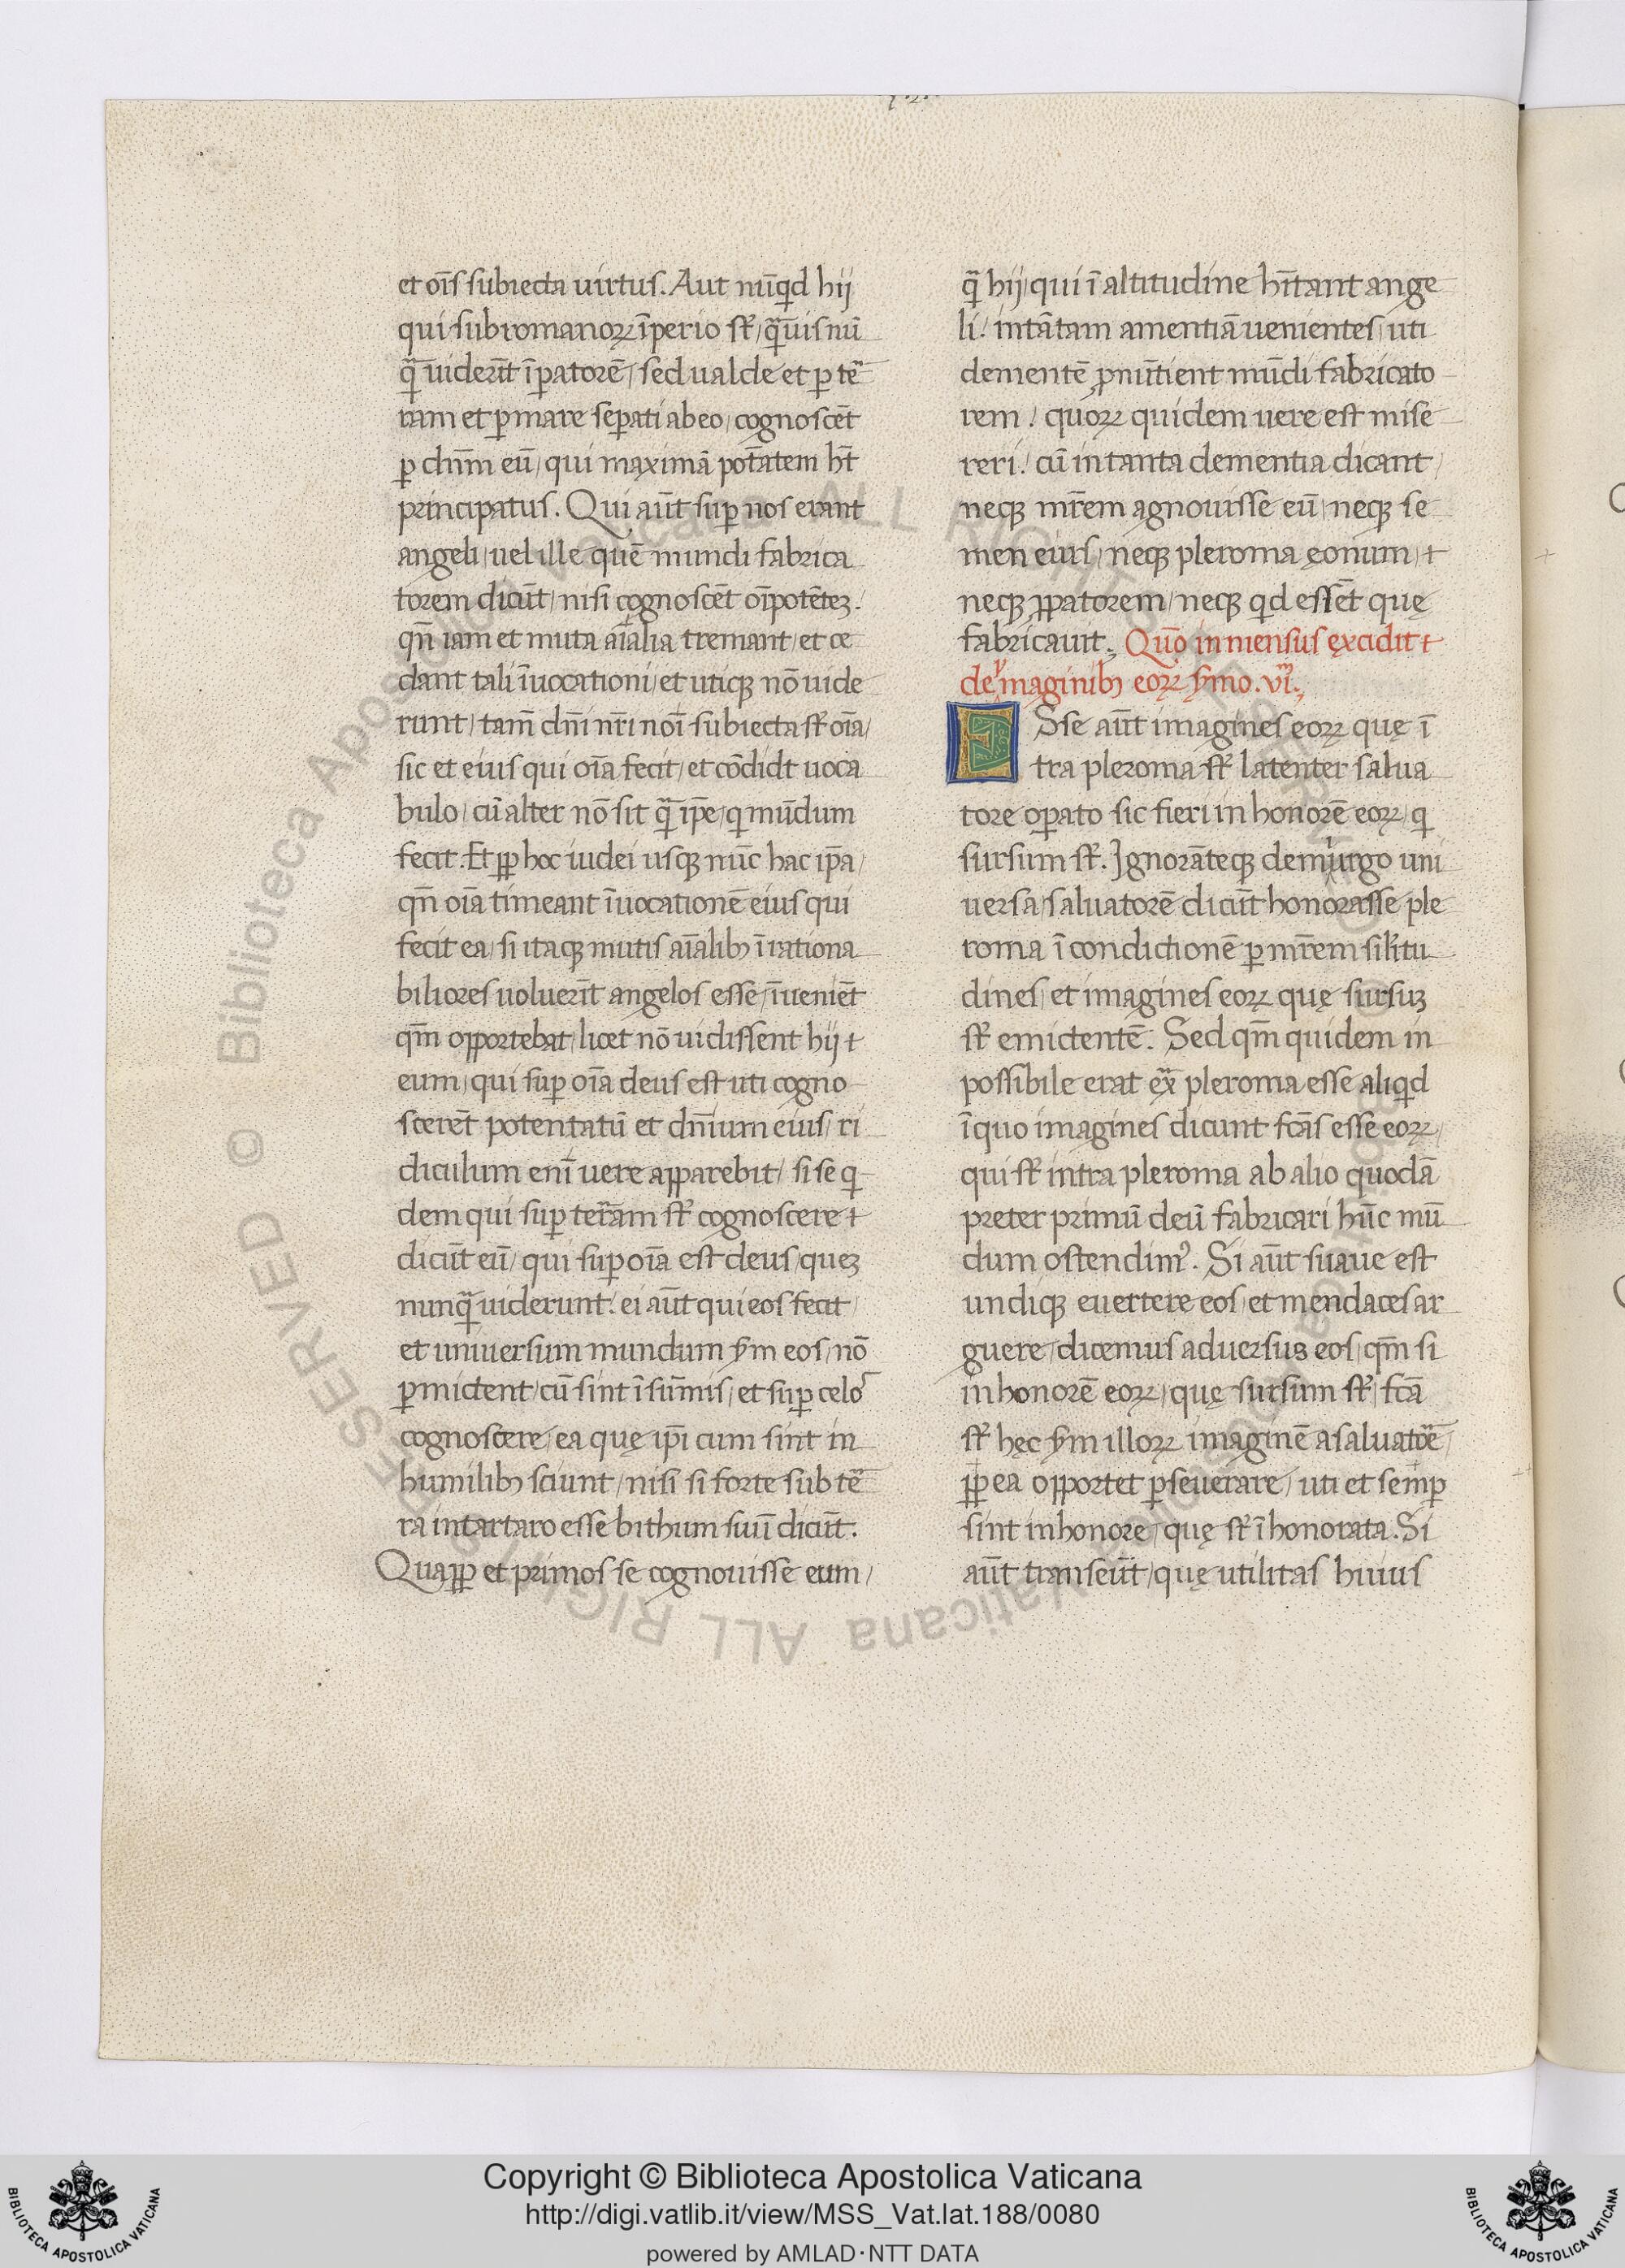 et oı̄s subiecta uirtus. Aut nūqͥd hij
qui sub romanoꝝ īperio st̄/ qᷓ̄uis nū
qᷓ̄ uiderīt īpatorē/ sed ualde et ꝑ teᷓ
ram et ꝑ mare seꝑati ab eo/ cognoscēt
ꝑ dn̄m eū/ qui maximā potātem hn̄t
principatus. Qui aūt suꝑ nos erant
angeli/ uel ille quē mundi fabrica
torem dicūt/ nisi cognoscēt oı̄potētēꝫ/.
qn̄ iam et muta aīalia tremant/ et ce
dant tali īuocationi/ et utiqꝫ nō uide
runt/ tam̄ dn̄i nr̄i noı̄ subiecta st̄ oı̄a/
sic et eius qui oı̄a fecit/ et cōdidt uoca
bulo/ cū alter nō sit qᷓ̄ ip̄e/ qͥ mūdum
fecit. Et ꝓp hoc iudei usqꝫ nūc hac ip̄a/
qn̄ oı̄a timeant īuocationē eius qui
fecit ea/ si itaqꝫ mutis aīalibꝫ īrationa
biliores uoluerīt angelos esse/ īuenīēt
qm̄ opportebat/ licet nō uidissent hij t
eum/ qui suꝑ oı̄a deus est uti cogno
scerēt potentatū et dn̄ium eius/ ri
diculum enī uere apparebit/ si se qͥ
dem qui suꝑ terᷓam st̄ cognoscere t
dicūt eū/ qui suꝑ oı̄a est deus/ queꝫ
nunqᷓ̄ uiderunt. ei aūt qui eos fecit/
et uniuersum mundum ẜm eos/ nō
ꝑmictent/ cū sint ī sūmis/ et suꝑ celoˢ
cognoscere/ ea quę ip̄i cum sint in
humilibꝫ sciunt/ nisi si forte sub teᷓ
ra in tartaro esse bithum suū dicūt.
Quaꝓp et primos se cognouisse eum/
qᷓ̄ hij/ qui ī altitudine hn̄tant ange
li/. in tātam amentiā uenientes/ uti
dementē ꝓnūtient mūdi fabricato
rem/. quoꝝ quidem uere est mise
reri/. cū in tanta dementia dicant/
neqꝫ mr̄em agnouisse eū/ neqꝫ se
men eius/ neqꝫ pleroma ęonum/ t
neqꝫ ꝓpatorem/ neqꝫ qͥd essēt quę
fabricauit. Quō inmensus ęxcidit t
de ymaginibꝫ eoꝝ ẜmo. vi.
Esse aūt imagines eoꝝ quę ī
tra pleroma st̄ latenter salua
tore oꝑato sic fieri in honorē eoꝝ/ qͥ
sursum st̄. Ignorāteqꝫ demiurgo uni
uersa/ saluatorē dicūt honorasse ple
roma ī condictionē ꝑ mr̄em sil̄itu
dines/ et imagines eoꝝ quę sursuꝫ
st̄ emictentē. Sed qm̄ quidem in
possibile erat exᷓ pleroma esse aliqͥd
ī quo imagines dicunt fcās esse eoꝝ/
qui st̄ intra pleroma ab alio quodā
preter primū deū fabricari hūc mū
dum ostendimꝰ. Si aūt suaue est
undiqꝫ euertere eos/ et mendaces ar
guere/ dicemus aduersus eos/ qm̄ si
in honorē eoꝝ/ quę sursum st̄/ fcā
st̄ hęc ẜm illoꝝ imaginē a saluatoē/
ꝓp ea opportet ꝑseuerare/ uti et semꝑ
sint in honore/ quę st̄ ī honorata. Si
aūt transeūt/ quę utilitas huius
Copyright © Biblioteca Apostolica Vaticana
http://digi.vatlib.it/view/MSS_Vat.lat.188/0080
powered by AMLAD·NTT DATA